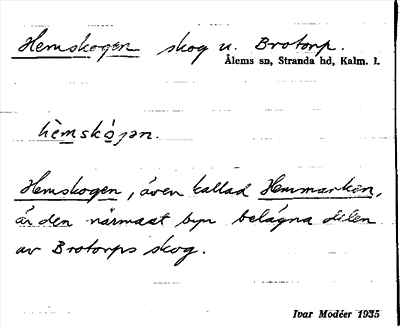 Hemskogen skog u. Brotorp.
Ålems sn, Stranda hd, Kalm. l.
hèmskóɡən.
Hemskogen, även kallad Hemmarken,
är den närmast byn belägna delen
av Brotorps skog.
Ivar Modéer 1935